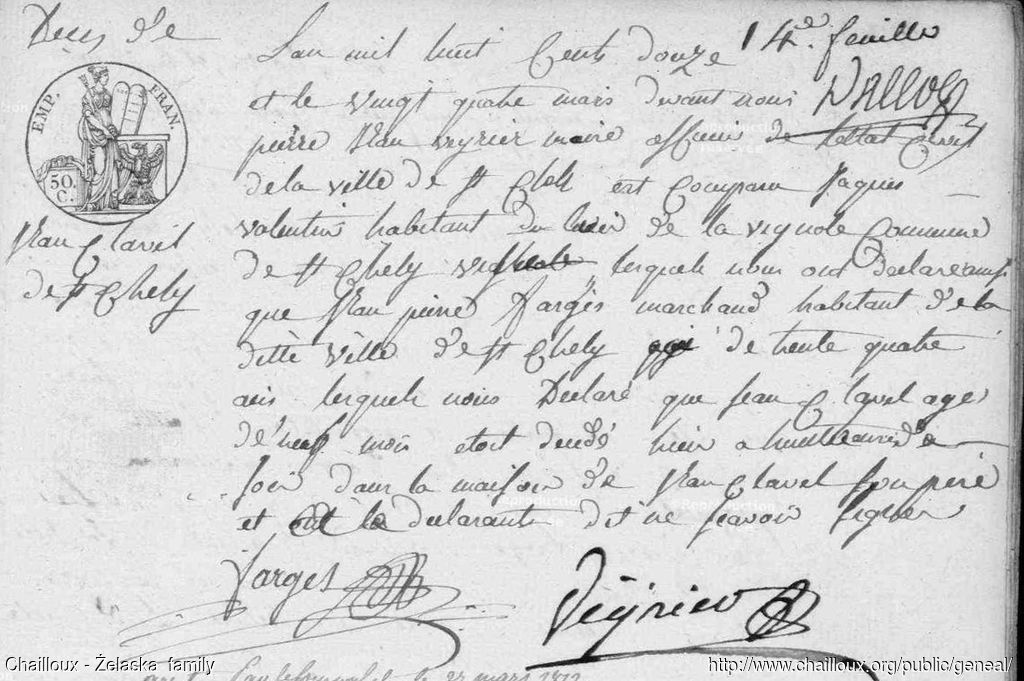 Deces de
14e. feuille
L'an mil huit Cents douze
et le vingt quatre mars devant nous
pierre Jean veyrier maire officier de lettat Civil
EMP. FRAN.
50.
C.
de la ville de St Chely est Comparu Jaques
Jean Clavel
de St Chely
valentin habitant du lieu de la vignole Commune
de St Chely lesquels nous ont declare
que Jean pierre Farges marchand habitant de la
ditte ville de St Chely agé de trente quatre
ans lesquels nous Declaré que Jean Clavel agé
de neuf mois etoit decedé hier a huit heures de
soir dans la maison de Jean Clavel son pere
et le declarant dit ne scavoir signer
Farges
Veyrier
Chailloux - Żelaska family
http://www.chailloux.org/public/geneal/
le 27 mars 1812